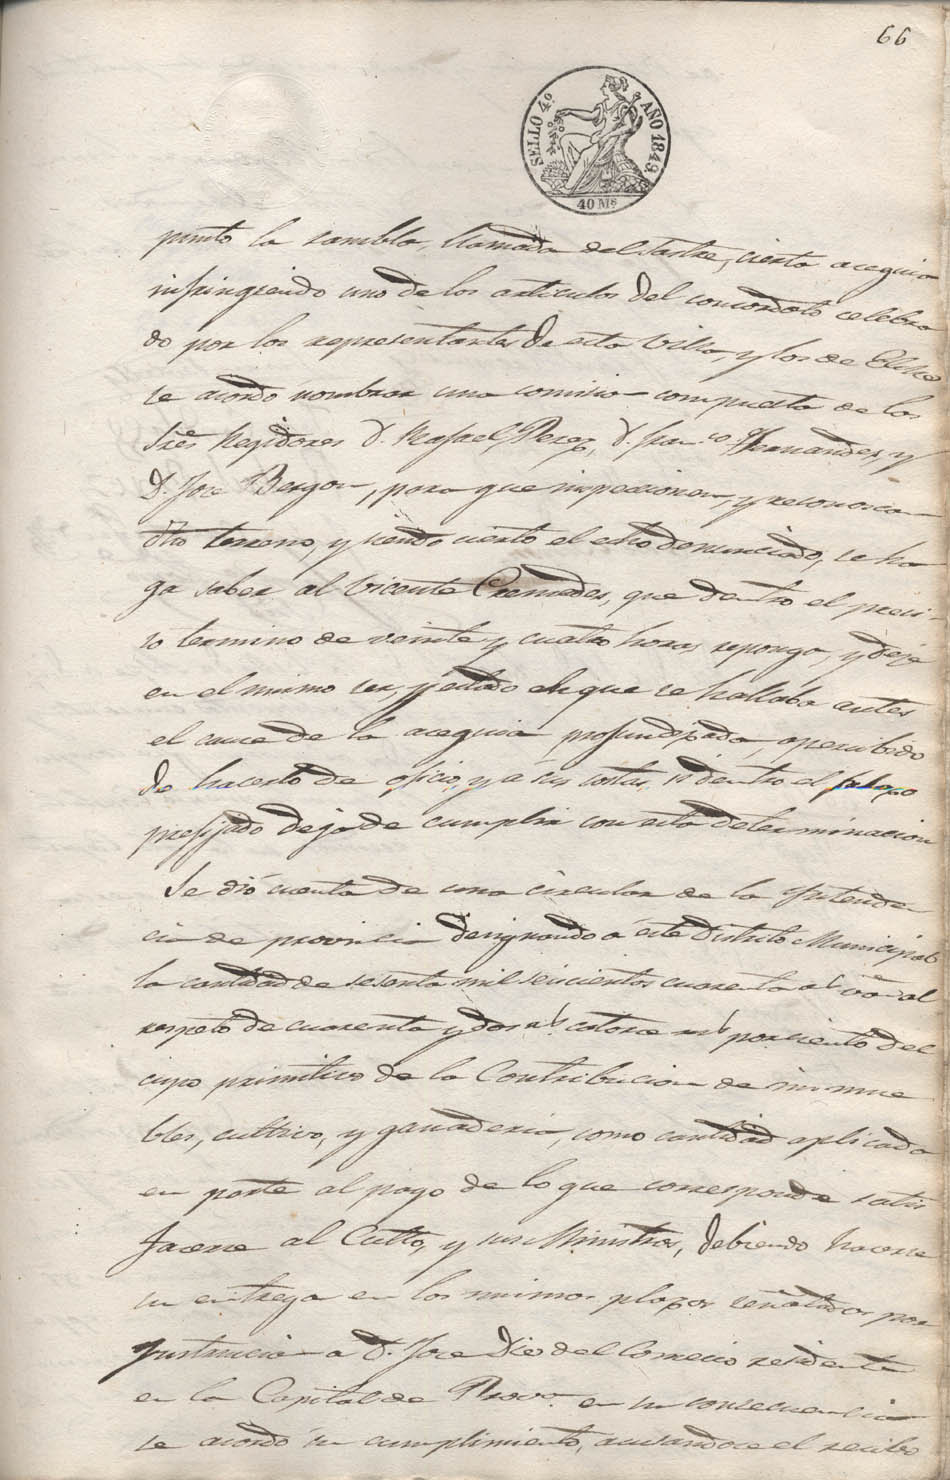 66
SELLO 4º AÑO 1849.
40 Ms
punto la rambla, llamada del Sastre, cierta acequia
infringiendo uno de los articulos del concordato celebra
do por los representantes de esta Villa, y los de Elche
se acordó nombrar una comision compuesta de los
Sres Regidores D. Rafael Perez, D. Franco Hernandez, y
D. Jose Bergon, para que inspeccionen, y reconozcan
dho terreno, y siendo cierto el echo denunciado, se ha
ga saber al Vicente Cremades, que dentro el preci
so termino de veinte y cuatro horas reponga, y deje
en el mismo ser, y estado en que se hallaba antes
el cauce de la acequia profundizada, apercibido
de hacerlo de oficio, y a sus costas, si dentro el plazo
prefijado deja de cumplir con esta determinacion
Se dió cuenta de una circular de la Yntenden
cia de provincia designando á este Distrito Municipal
la cantidad de sesenta mil seiscientos cuarenta rs von al
respeto de cuarenta y dos rs catorce ms por ciento del
cupo primitivo de la Contribucion de inmue
bles, cultivo, y ganaderia, como cantidad aplicada
en parte al pago de lo que corresponde satis
facerse al Culto, y sus Ministros, debiendo hacerse
su entrega en los mismos plazos señalados por
Ynstruccion a D. Jose Dies del Comercio residente
en la Capital de Prova en su consecuencia
se acordó su cumplimiento, acusandose el recibo